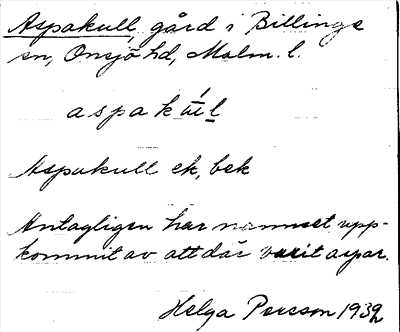 Aspakull, gård i Billinge
sn, Onsjö hd, Malm. l.
aspak
Aspakull ek, bek
Antagligen har namnet upp-
kommit av att där varit aspar.
Helga Persson 1932